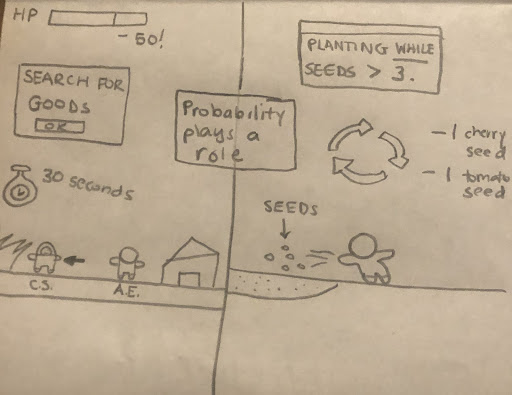 HP
- 50!
SEARCH FOR
GOODS
OK
30 seconds
C.S.
A.E.
Probability
plays a
role
PLANTING WHILE
SEEDS > 3.
- 1 cherry
seed
- 1 tomato
seed
SEEDS